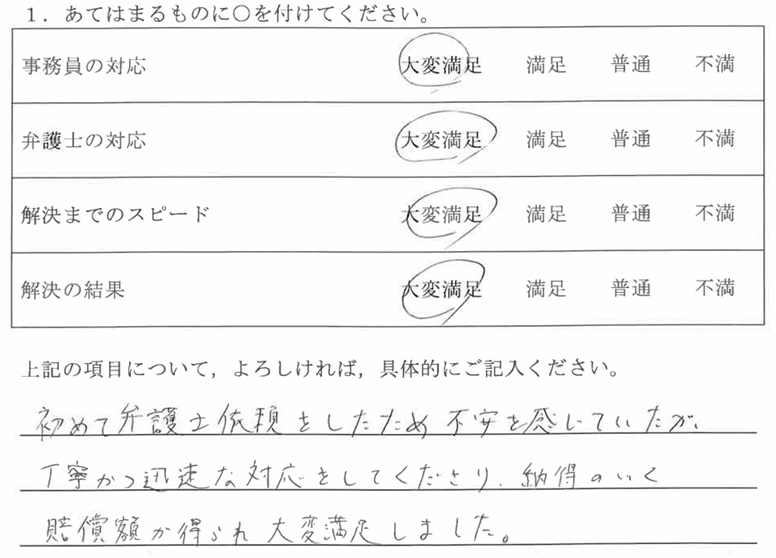 1．あてはまるものに〇を付けてください。
事務員の対応 大変満足 満足 普通 不満
弁護士の対応 大変満足 満足 普通 不満
解決までのスピード 大変満足 満足 普通 不満
解決の結果 大変満足 満足 普通 不満
上記の項目について，よろしければ，具体的にご記入ください。
初めて弁護士依頼をしたため不安を感じていたが、
丁寧かつ迅速な対応をしてくださり、納得のいく
賠償額が得られ大変満足しました。